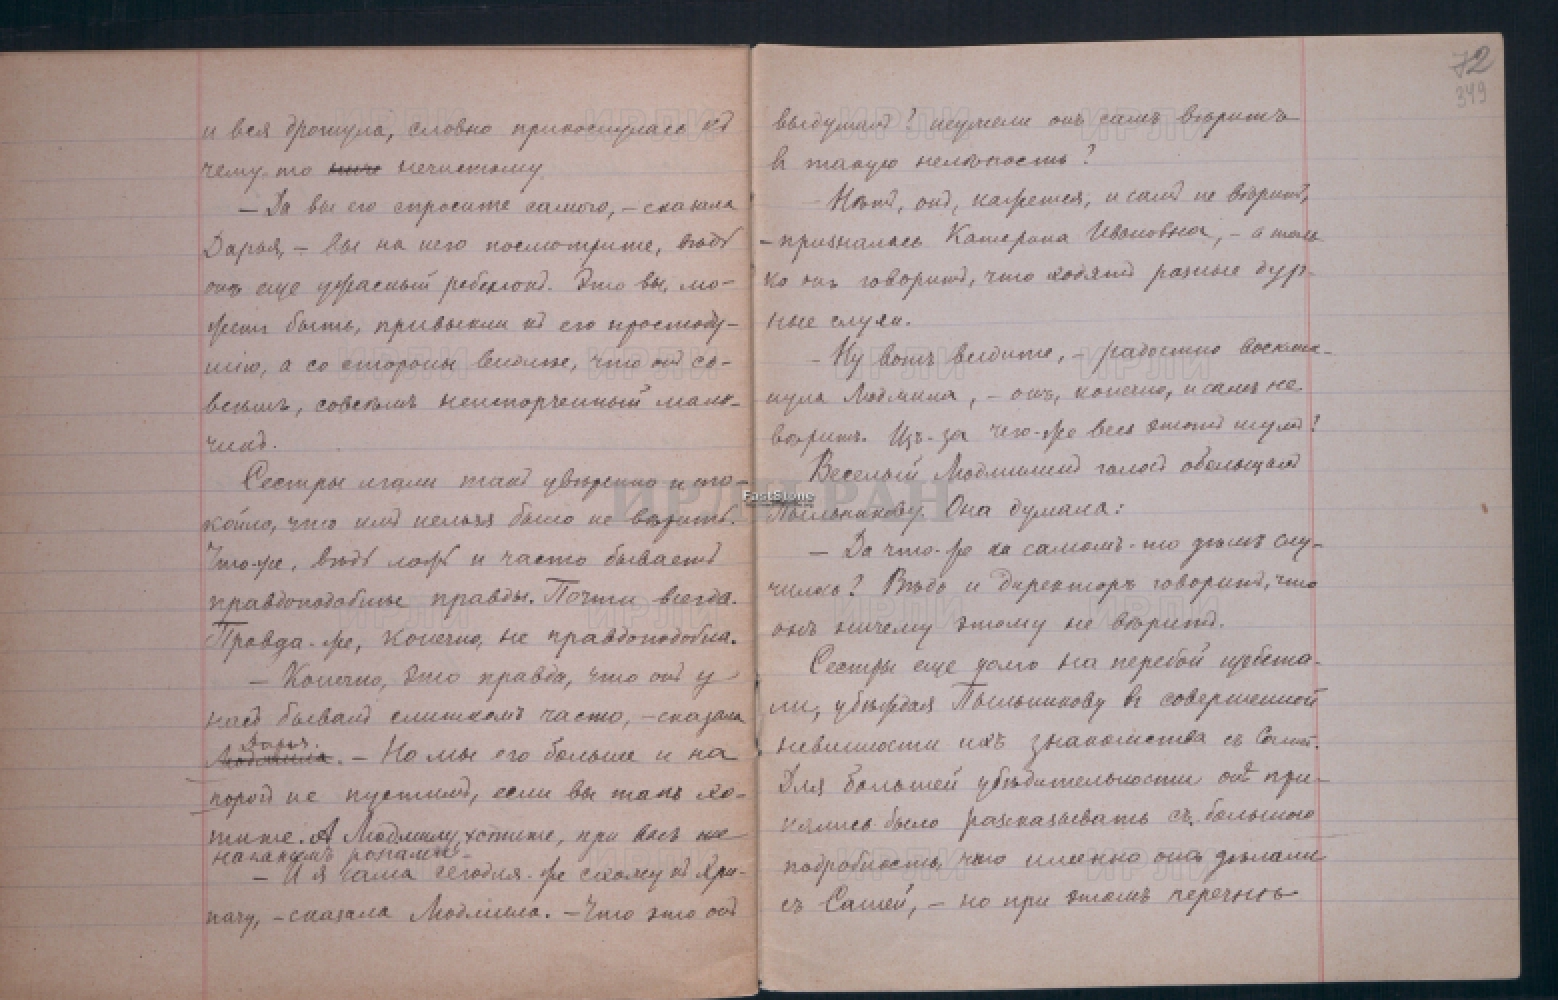 и вся дрогнула, словно прикоснулась къ
чему-то ниче нечистому.
— Да вы его спросите самого, — сказала
Дарья, — вы на него посмотрите, вѣдь
онъ еще ужасный ребенокъ. Это вы, мо-
жетъ быть, привыкли къ его простоду-
шію, а со стороны виднѣе, что онъ со-
всѣмъ, совсѣмъ неиспорченный маль-
чикъ.
Сестры лгали такъ увѣренно и спо-
койно, что имъ нельзя было не вѣрить.
Что-же, вѣдь ложь и часто бываетъ
правдоподобнѣе правды. Почти всегда.
Правда-же, конечно, не правдоподобна.
— Конечно, это правда, что онъ у
насъ бывалъ слишкомъ часто, — сказала
Дарья.
Людмила. — Но мы его больше и на
порогъ не пустимъ, если вы такъ хо-
тите. А Людмилу, хотите, при васъ же
накажемъ розгами.
— И я сама сегодня-же схожу къ Хри-
пачу, — сказала Людмила. — Что это онъ
72
349
выдумалъ? неужели онъ самъ вѣритъ
въ такую нелѣпость?
— Нѣтъ, онъ, кажется, и самъ не вѣритъ,
— призналась Катерина Ивановна, — а толь
ко онъ говоритъ, что ходятъ разные дур-
ные слухи.
— Ну вотъ видите, — радостно воскли-
нула Людмила, — онъ, конечно, и самъ не
вѣритъ. Изъ-за чего-же весь этотъ шумъ?
Веселый Людмилинъ голосъ обольщалъ
Пыльникову. Она думала:
— Да что-же на самомъ-то дѣлѣ слу-
чилось? Вѣдь и директоръ говоритъ, что
онъ ничему этому не вѣритъ.
Сестры еще долго на перебой щебета-
ли, убѣждая Пыльникову въ совершенной
невинности ихъ знакомства съ Сашей.
Для большей убѣдительности онѣ при-
нялись было разсказывать съ большою
подробностью, что именно онѣ дѣлали
съ Сашей, — но при этомъ перечнѣ
ИРЛИ РАН
FastStone